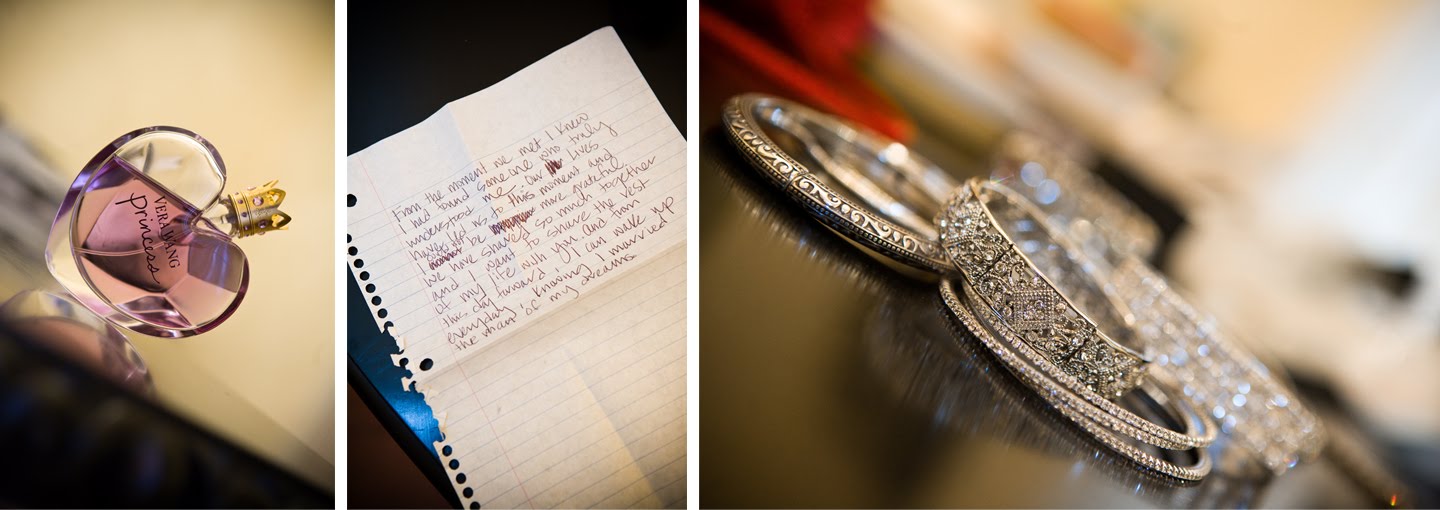 VERA WANG
Princess
From the moment we met I knew
I had found someone who truly
understood me. Our lives
have led us to this moment and
I be more grateful
we have shared so much together
and I want to share the rest
of my life with you. and from
this day forward I can wake up
everyday knowing I married
the man of my dreams